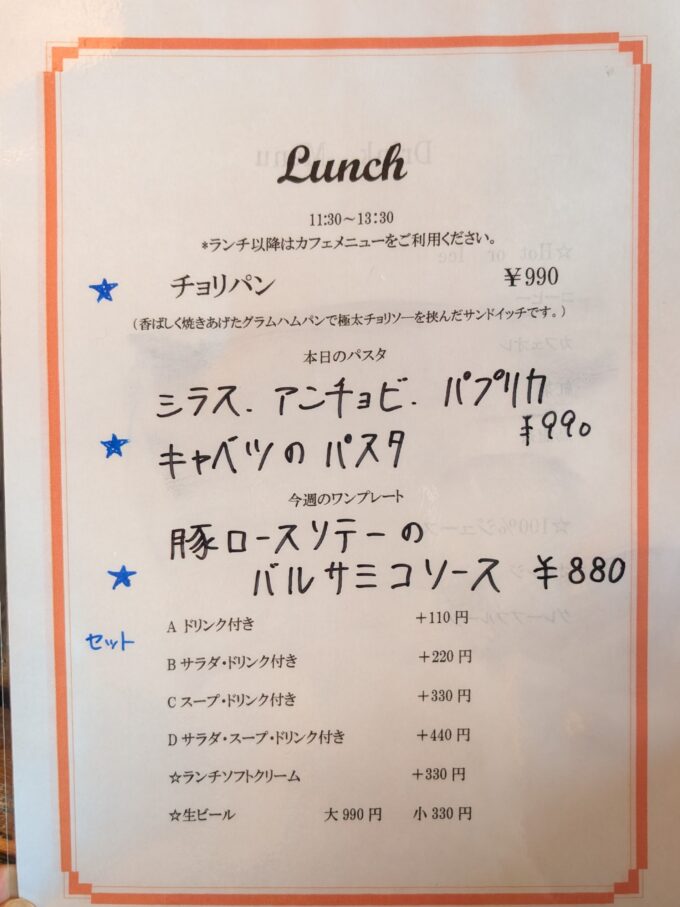 Lunch
11:30～13:30
*ランチ以降はカフェメニューをご利用ください。
★ チョリパン ￥990
（香ばしく焼きあげたグラムハムパンで極太チョリソーを挟んだサンドイッチです。）
本日のパスタ
シラス、アンチョビ、パプリカ
★ キャベツのパスタ ￥990
今週のワンプレート
豚ロースソテーの
★ バルサミコソース ￥880
セット
A ドリンク付き ＋110円
B サラダ・ドリンク付き ＋220円
C スープ・ドリンク付き ＋330円
D サラダ・スープ・ドリンク付き ＋440円
☆ランチソフトクリーム ＋330円
☆生ビール 大990円 小330円